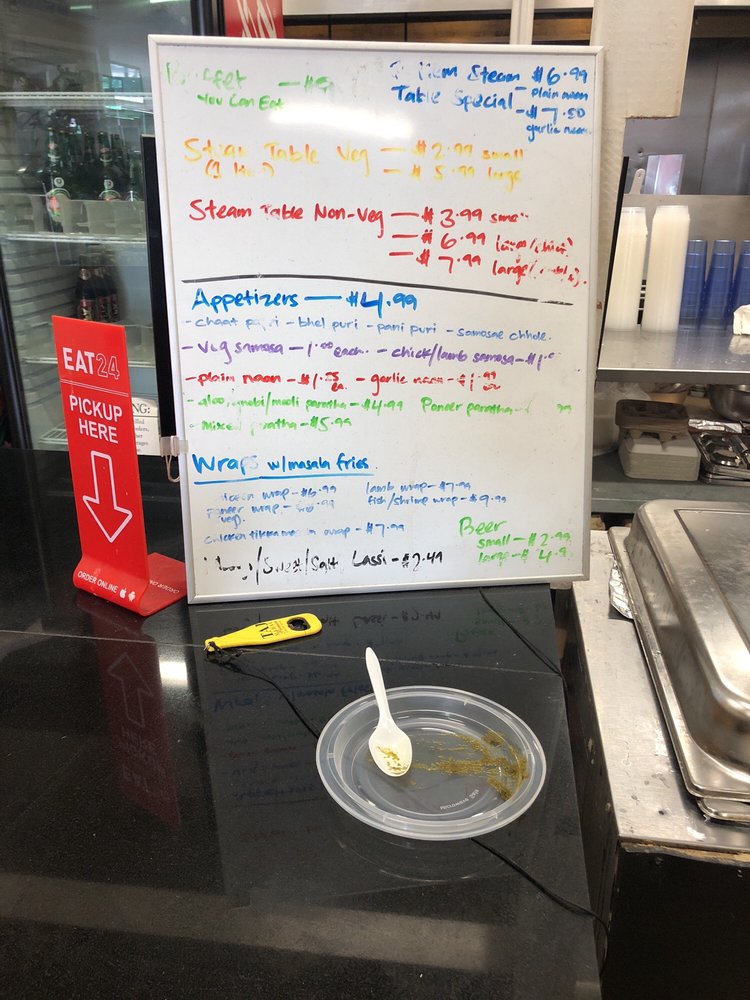 You Can Eat
Item Steam $6.99
Table Special - plain naan
- $7.50
garlic naan
Steam Table Veg - $2.99 small
- $5.99 large
Steam Table Non-Veg - $3.99
- $6.99
- $7.99 large
Appetizers - $4.99
- chaat papri - bhel puri - pani puri - samosae chhole.
- veg samosa - 1.00 each. - chick/lamb samosa - $1.
- plain naan - $1. ea. - garlic naan - $1.99 ea
- aloo/gobi/mooli paratha - $4.99 Paneer paratha - 99
- mixed paratha - $5.99
Wraps w/masala fries
wrap - $6.99 lamb wrap - $7.99
paneer wrap - fish/shrimp wrap - $9.99
veg.
chicken tikka masala wrap - $7.99
Beer
small - $2.99
large - $4.9
/Sweet/Salt Lassi - $2.49
EAT24
PICKUP
HERE
ORDER ONLINE